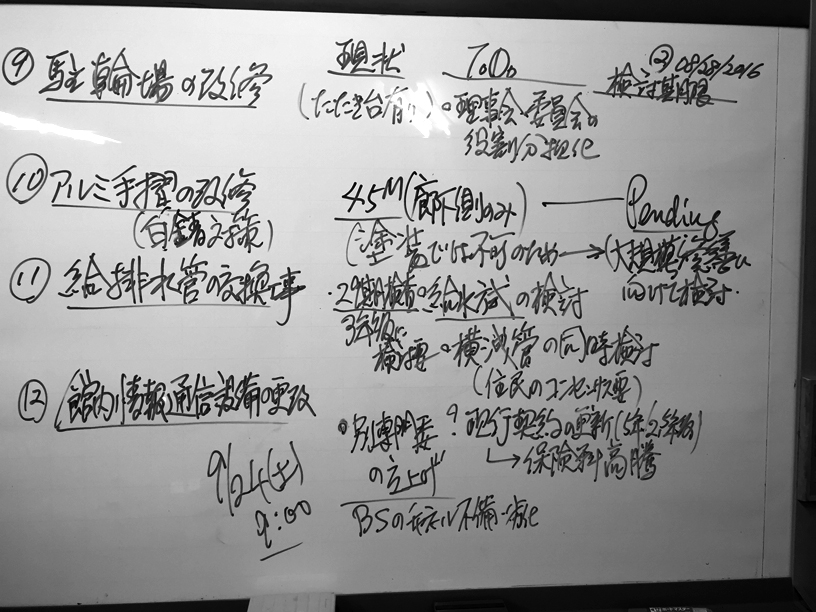 ⑨ 駐輪場の改修
現状
ToDo
② 08/28/2016
検討期限
(たたき台有り)
・理事会、委員会の
役割分担化
⑩ アルミ手摺の改修
(白錆対策)
4.5M(廊下側のみ)
Pending
(塗装では不可のため → (大規模修繕に
向けて検討.
⑪ 給排水管の交換工事
給水 の検討
・横 管の同時検討
(住民のコンセンサス要)
⑫ 館内情報通信設備の更改
・別専門委
の立上げ
? 現行契約の更新(5年
↳ 保険料高騰
BSの 不備・劣化
9/24(土)
9:00